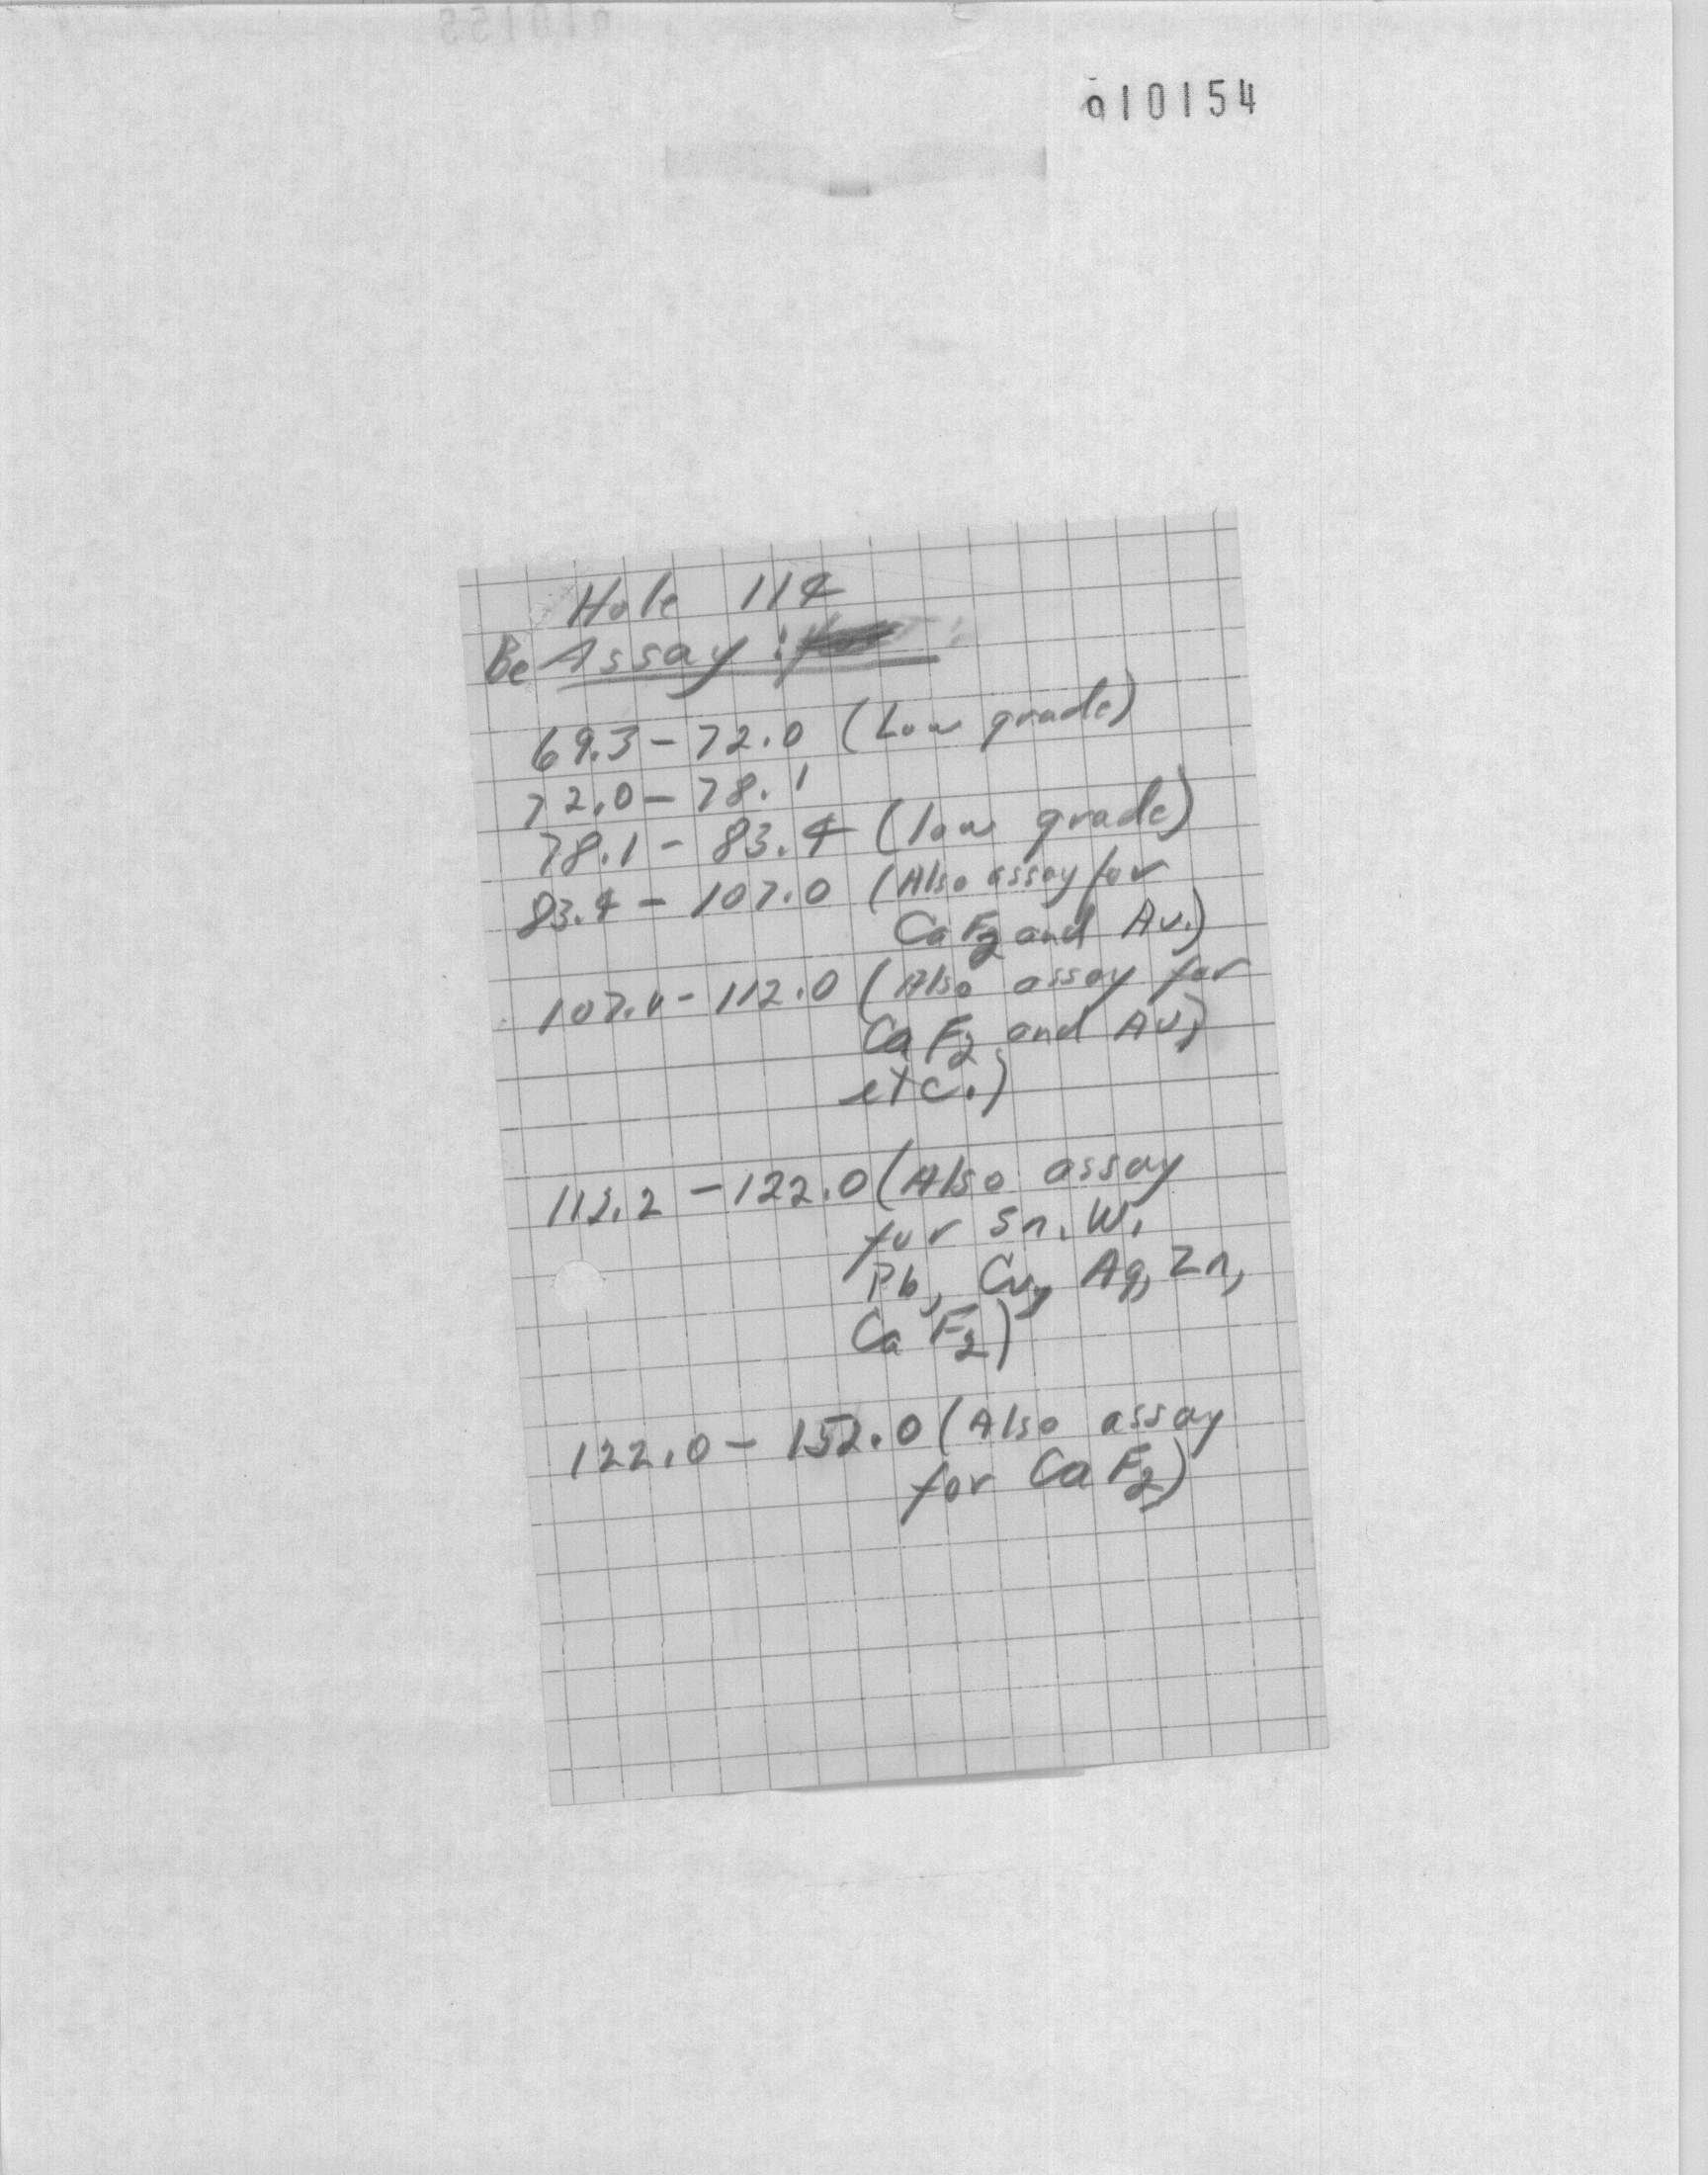 010154
Hole 114
Be Assay:
69.3 - 72.0 (Low grade)
72.0 - 78.1
78.1 - 83.4 (low grade)
83.4 - 107.0 (Also assay for
CaF2 and Au.)
107.0 - 112.0 (Also assay for
CaF2 and Au,
etc.)
112.2 - 122.0 (Also assay
for Sn, W,
Pb, Cu, Ag, Zn,
CaF2)
122.0 - 152.0 (Also assay
for CaF2)